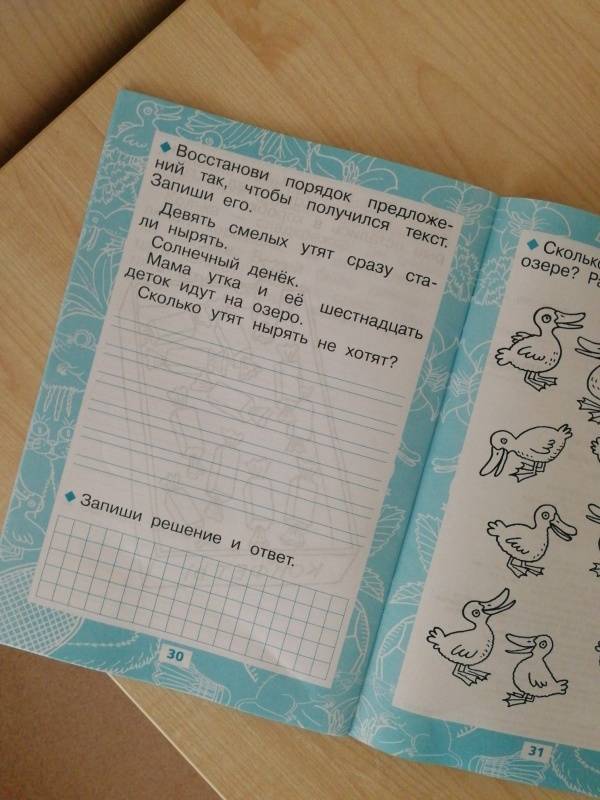 Восстанови порядок предложе-
ний так, чтобы получился текст.
Запиши его.
Девять смелых утят сразу ста-
ли нырять.
Солнечный денёк.
Мама утка и её шестнадцать
деток идут на озеро.
Сколько утят нырять не хотят?
Запиши решение и ответ.
30
Сколько
озере?
31